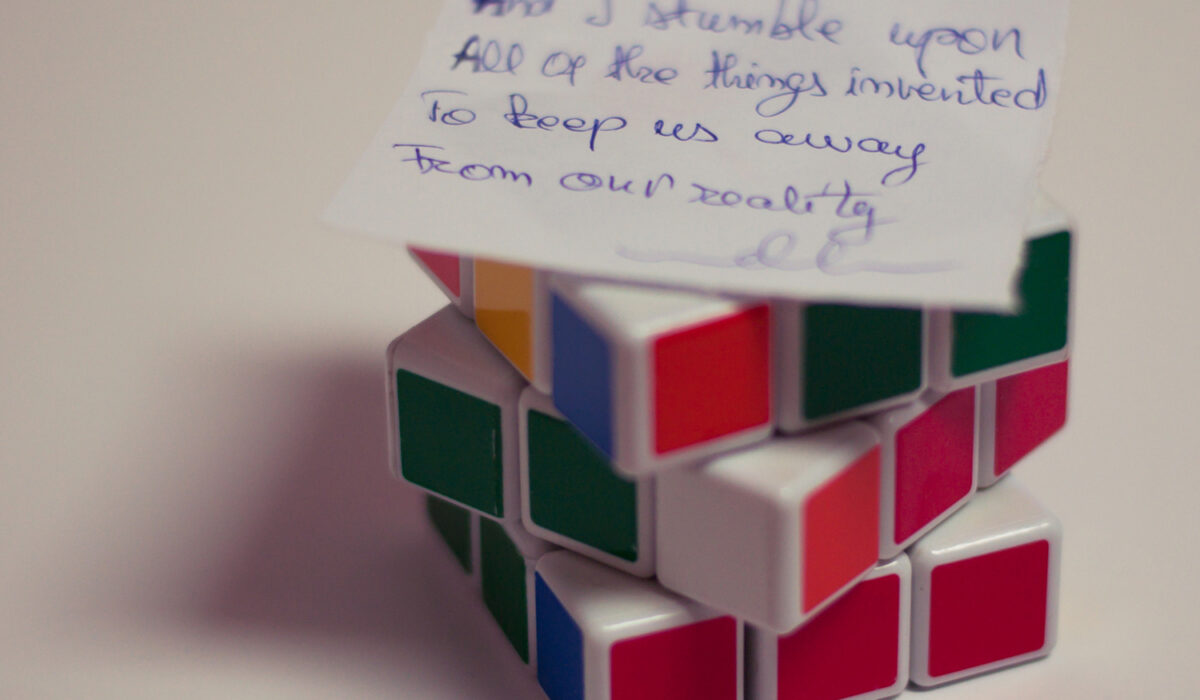 And I stumble upon
All of the things invented
To keep us away
From our reality